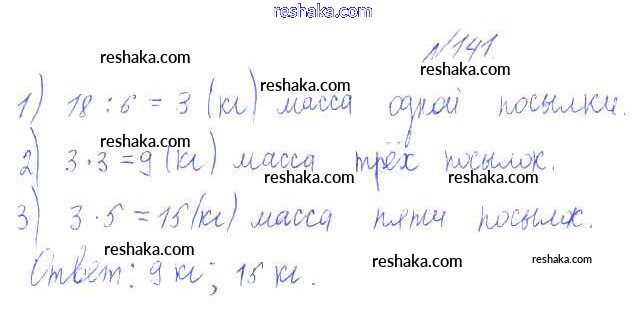 reshaka.com
№141.
reshaka.com reshaka.com
1) 18 : 6 = 3 (кг) масса одной посылки.
reshaka.com reshaka.com reshaka.com
2) 3 · 3 = 9 (кг) масса трёх посылок.
reshaka.com reshaka.com
3) 3 · 5 = 15 (кг) масса пяти посылок.
reshaka.com reshaka.com reshaka.com
Ответ: 9 кг; 15 кг.